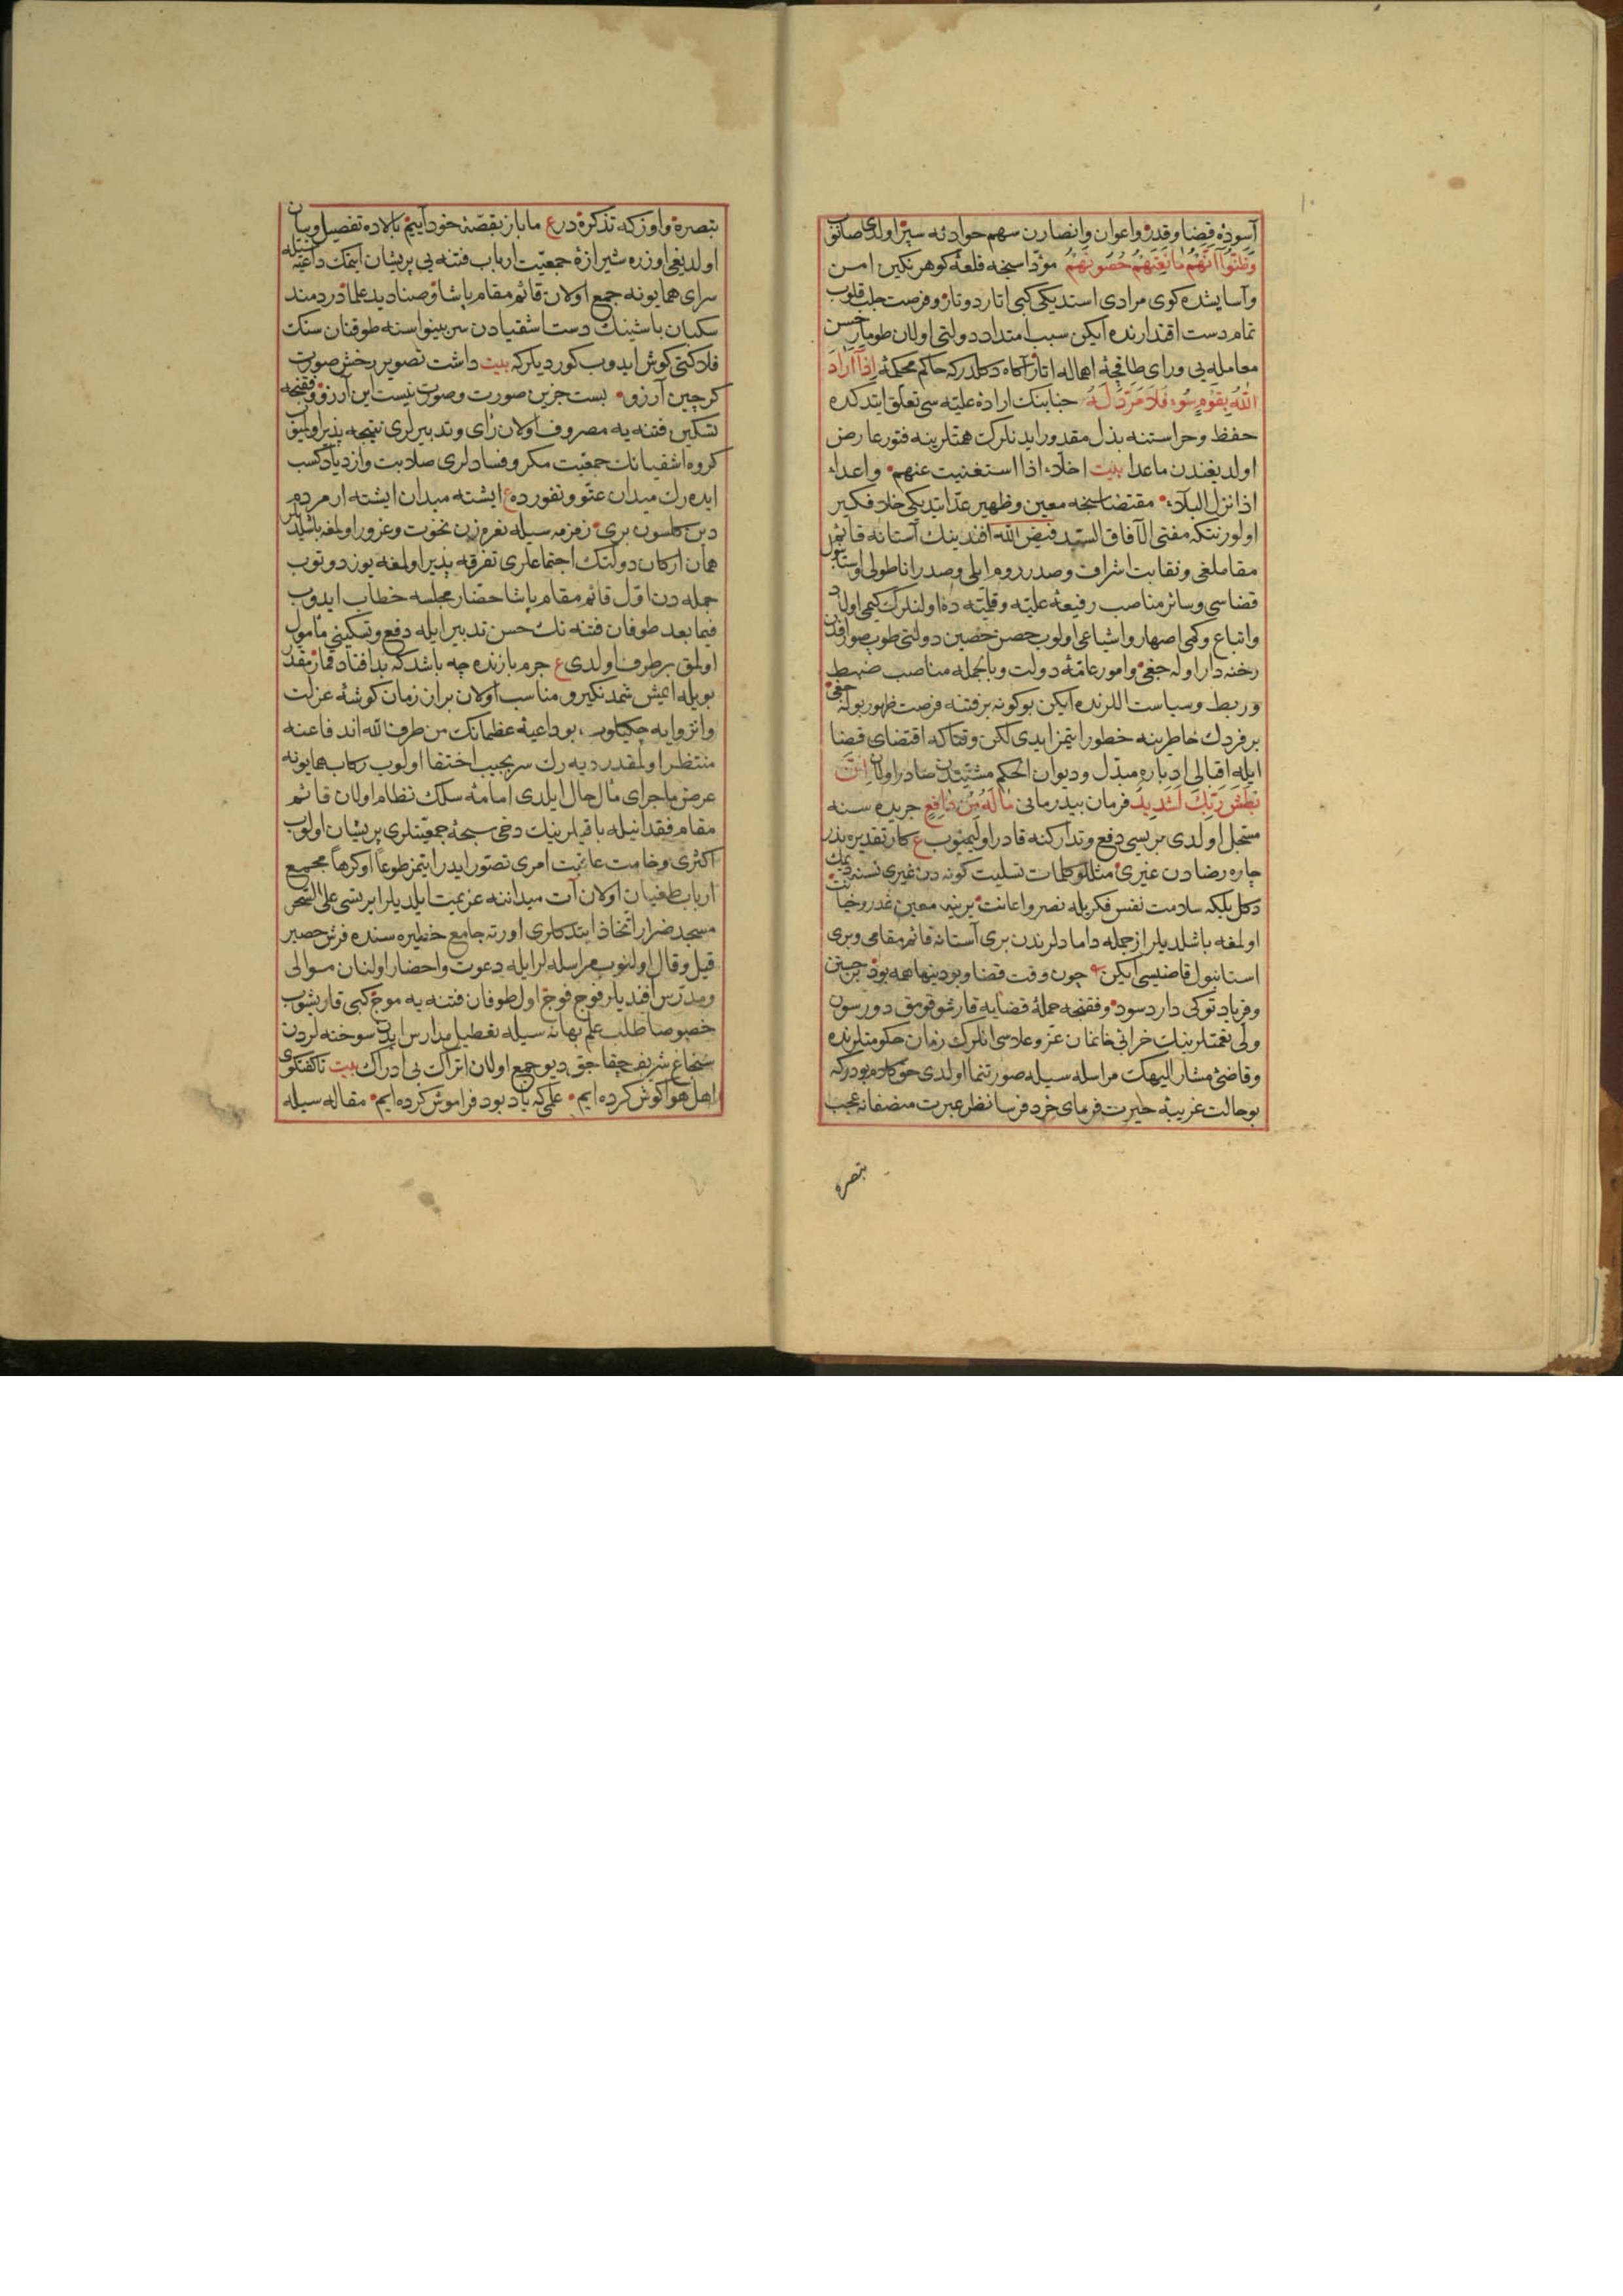 آسوده قضا وقدر واعوان وانصارن سهم حوادثه سپر اولدی صانوب
وَظَنُّوا أَنَّهُمْ مَانِعَتُهُمْ حُصُونُهُمْ مؤداسنجه قلعهٔ کوهر نکین امن
وآسایشده کوی مرادی استدیکی کبی اتار دوتار وفرصت جلب قلوب
تمام دست اقتدارنده ایکن سبب امتداد دولتی اولان طومار حسن
معامله یی ورای طاقچهٔ اهماله اتار آکاه دکلدر که حاکم محکمهٔ إِذَا أَرَادَ
اللّٰهُ بِقَوْمٍ سُوءً فَلَا مَرَدَّ لَهُ جنابنک ارادهٔ علیه سی تعلق ایتدکده
حفظ وحراستنه بذل مقدور ایدنلرک همتلرینه فتور عارض
اولدیغندن ماعدا بیت اخلاء اذا استغنیت عنهم واعداء
اذا نزل البلاء مقتضاسنجه معین وظهیر عد ایتدیکی خلاد فکیر
اولور نتکه مفتی الآفاق السید فیض الله افندینک آستانه قائم
مقاملغی ونقابت اشراف وصدر روم ایلی وصدر اناطولی واستانبول
قضاسی وسائر مناصب رفیعهٔ علیه وقلیه ده اولنلرک کیمی اولاد
واتباع وکمی اصهار واشیاعی اولوب حصن حصین دولتی طوب صواقدن
رخنه دار اوله جغی وامور عامهٔ دولت وبالجمله مناصب ضبط
وربط وسیاست اللرنده ایکن بوکونه بر فتنه فرصت ظهور بوله جغی
بر فردک خاطرینه خطور ایتمز ایدی لکن وقتاکه اقتضای قضا
ایله اقبالی ادباره مبدل ودیوان الحکم مشیتدن صادر اولان اِنَّ
بَطْشَ رَبِّكَ لَشَدِيدٌ فرمان بیدرمانی مَا لَهُ مِنْ دَافِعٍ جریده سنه
مسجل اولدی هر بسی دفع وتدارکنه قادر اولیمیوب ع کار تقدیره بذر
چاره رضادن غیری مثللو کلمات تسلیت کونه دن غیری نسنه دیمک
دکل بلکه سلامت نفس فکریله نصر واعانت یرینه معین غدر وخیانت
اولمغه باشلدیلر ازجمله دامادلرندن بری آستانه قائم مقامی وبری
استانبول قاضیسی ایکن چون وقت قضا وبودینها همه بود جبین
وفریاد توکی دارد سود وفقنجه جملهٔ قضایه قارشو قومق دورسون
ولی نعمتلرینک خرابی خانمان عز وعلاسی انلرک زمان حکومتلرنده
وقاضئ مشار الیهک مراسله سیله صورتنما اولدی حق کلام بودرکه
بوحالت غریبهٔ حیرت فرمای خرد فرسا نظر عبرت منصفانه عجب
تبصره
تبصره واوزکه تذکره در ع ما باز بقصهٔ خود آییم بالاده تفصیل وبیان
اولدیغی اوزره شیرازهٔ جمعیت ارباب فتنه یی پریشان ایتمک داعیه سیله
سرای همایونه جمع اولان قائم مقام پاشا وصنادید علما دردمند
سکبان باشینک دست اشقیادن سر بینواسنه طوقنان سنک
فلاکتی کوش ایدوب کوردیلر که بیت داشت تصویر رخش صورت
کرچین آرزو بست جزین صورت وصورت نیست این آرزو وفقنجه
تسکین فتنه یه مصروف اولان رای وتدبیرلری نتیجه پذیر اولمیوب
کروه اشقیانک جمعیت مکر وفسادلری صلابت وازدیاد کسب
ایده رک میدان عتو ونفورده ع ایشته میدان ایشته ار مردم
دین کلسون بری زمزمه سیله نعره زن نخوت وغرور اولمغه باشلدیلر
همان ارکان دولتک اجتماعلری تفرقه پذیر اولمغه یوز دوتوب
جمله دن اول قائم مقام پاشا حضار مجلسه خطاب ایدوب
فیما بعد طوفان فتنه نک حسن تدبیر ایله دفع وتسکینی مأمول
اولمق برطرف اولدی ع جرم بازنده چه باشد که بد افتاد قمار مقدر
بویله ایمش شمدنکیرو مناسب اولان بر از زمان کوشهٔ عزلت
وانزوایه چکیلوب بوداعیهٔ عظمانک من طرف الله اندفاعنه
منتظر اولمقدر دیه رک سر بجیب اختفا اولوب رکاب همایونه
عرض ماجرای مآل حال ایلدی امامه سلک نظام اولان قائم
مقام فقدانیله باقیلرینک دخی سبحهٔ جمعیتلری پریشان اولوب
اکثری وخامت عاقبت امری تصور ایدر ایتمز طوعا او کرها مجمع
ارباب طغیان اولان آت میداننه عزیمت ایلدیلر ایرتسی علی السحر
مسجد ضرار اتخاذ ایتدکلری اورته جامع خطیره سنده فرش حصیر
قیل وقال اولنوب مراسله لر ایله دعوت واحضار اولنان موالی
ومدرس افندیلر فوج فوج اول طوفان فتنه یه موج کبی قاریشوب
خصوصا طلب علم بهانه سیله تعطیل مدارس ایدن سوخته لردن
سنجاغ شریف چیقاجق دیو جمع اولان اتراک بی ادراک بیت تا کفتکوی
اهل هوا کوش کرده ایم علمی که یاد بود فراموش کرده ایم مقاله سیله